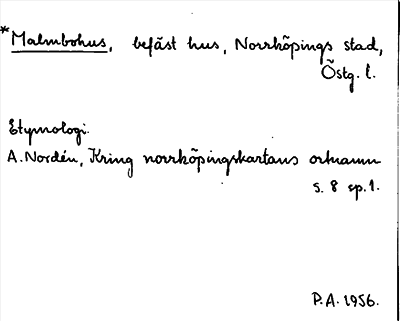 *Malmbohus, befäst hus, Norrköpings stad,
Östg. l.
Etymologi.
A. Nordén, Kring norrköpingskartans ortnamn
s. 8 sp. 1.
P.A. 1956.